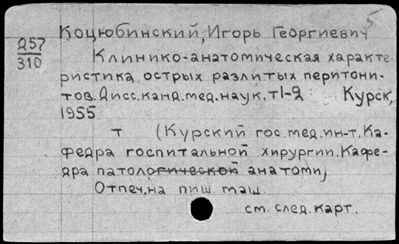 5
Коцюбинский, Игорь Георгиевич
Д57
310
Клинико-анатомическая характе-
ристика острых разлитых перитони-
тов. Дисс. канд. мед. наук. т1-2 Курск,
1955
т (Курский гос. мед. ин-т. Ка-
федра госпитальной хирургии. Кафе-
дра патологической анатоми)
Отпеч. на пиш. маш
см. след. карт.